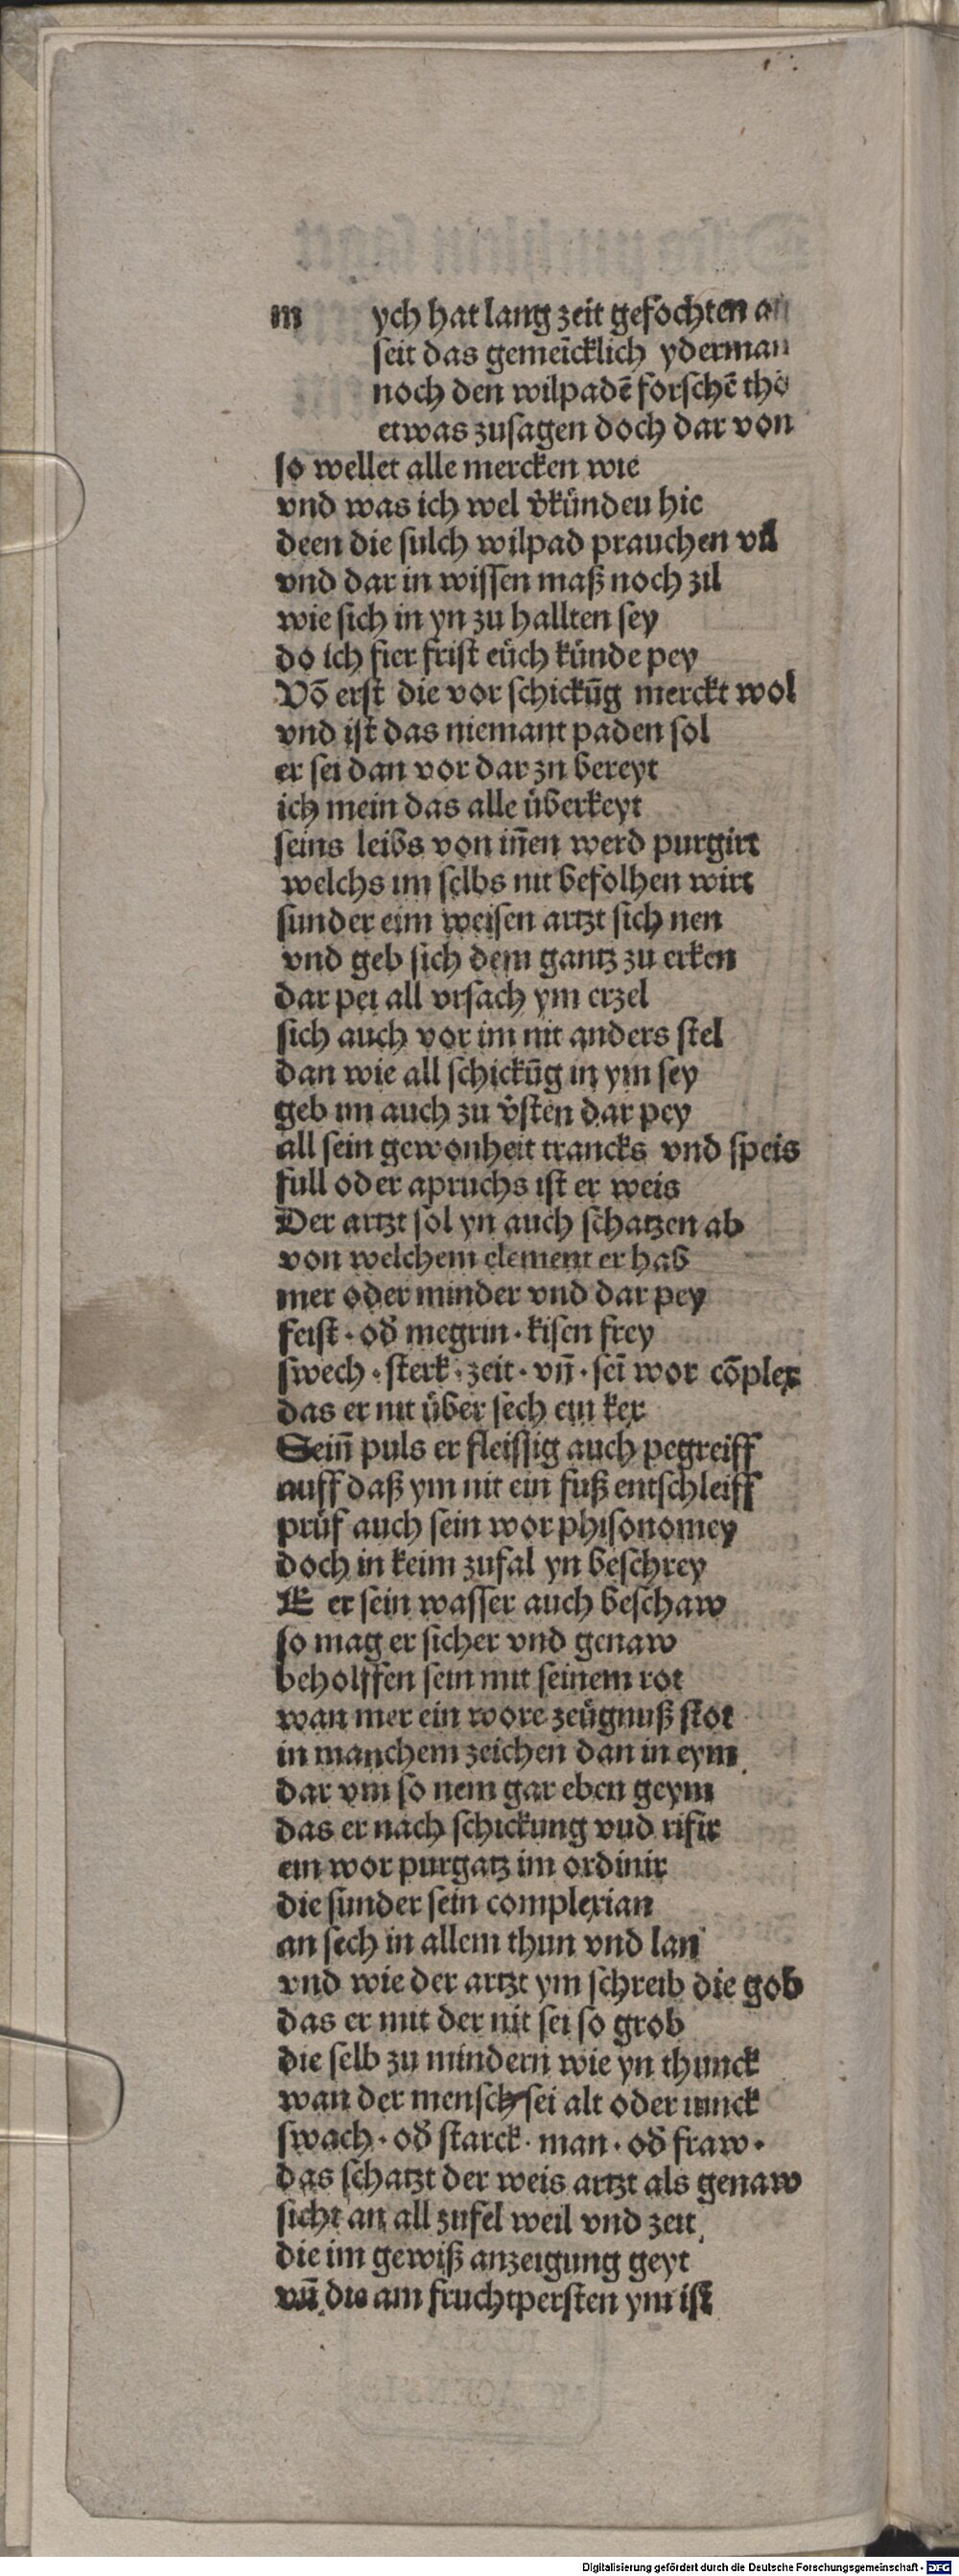 m ych hat lang zeit gefochten an
seit das gemeīcklich yderman
noch den wilpadē forschē tho
etwas zusagen doch dar von
so wellet alle mercken wie
vnd was ich wel v̄kündeu hie
deen die sulch wilpad prauchen vil
vnd dar in wissen maß noch zil
wie sich in yn zu hallten sey
do ich fier frist eüch künde pey
Vō erst die vor schickūg merckt wol
vnd ist das niemant paden sol
er sei dan vor dar zn bereyt
ich mein das alle überkeyt
seins leibs von iñen werd purgirt
welchs im selbs nit befolhen wirt
sunder eim weisen artzt sich nen
vnd geb sich dem gantz zu erken
dar pei all vrsach ym erzel
sich auch vor im nit anders stel
dan wie all schickūg in ym sey
geb im auch zu v̄sten dar pey
all sein gewonheit trancks vnd speis
full oder apruchs ist er weis
Der artzt sol yn auch schatzen ab
von welchem element er hab
mer oder minder vnd dar pey
feist · od̄ megrin · kisen frey
swech · sterk · zeit · vñ · seī wor cōplex
das er nit über sech ein kex
Seiñ puls er fleissig auch pegreiff
auff daß ym nit ein fuß entschleiff
prüf auch sein wor phisonomey
doch in keim zufal yn beschrey
E er sein wasser auch beschaw
so mag er sicher vnd genaw
beholffen sein mit seinem rot
wan mer ein wore zeügnuß stot
in manchem zeichen dan in eym
dar vm so nem gar eben geym
das er nach schickung vud rifir
ein wor purgatz im ordinir
die sunder sein complexian
an sech in allem thun vnd lan
vnd wie der artzt ym schreib die gob
das er mit der nit sei so grob
die selb zu mindern wie yn thunck
wan der mensch sei alt oder iunck
swach · od̄ starck · man · od̄ fraw ·
das schatzt der weis artzt als genaw
sicht an all zufel weil vnd zeit
die im gewiß anzeigung geyt
vñ die am fruchtpersten ym ist
Digitalisierung gefördert durch die Deutsche Forschungsgemeinschaft - DFG